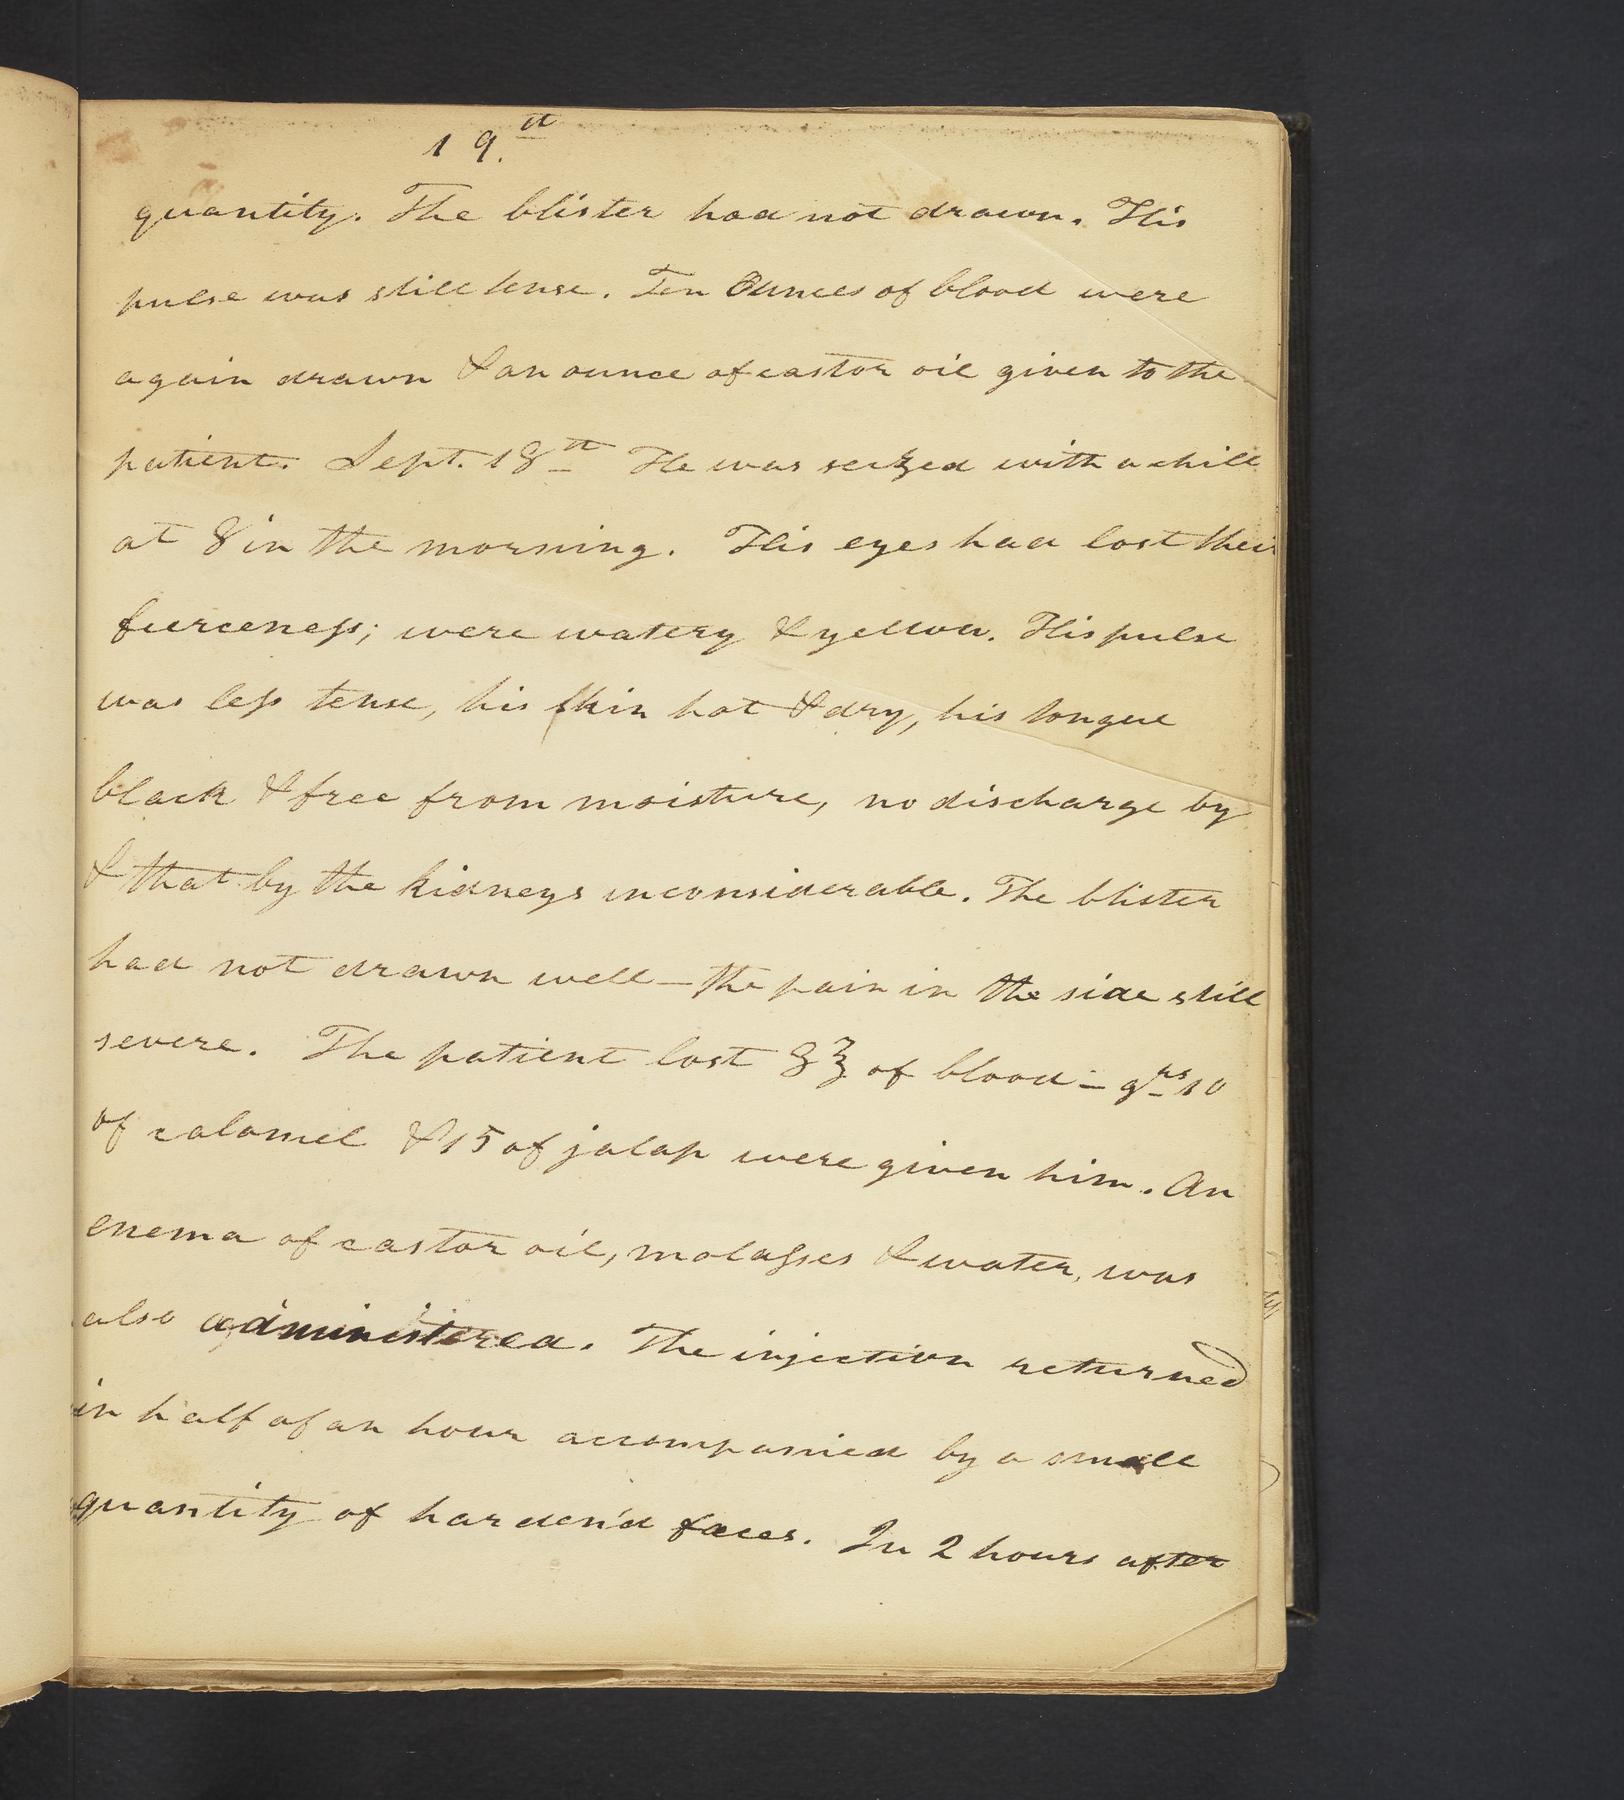 19.th
quantity. The blister had not drawn. His
pulse was still tense. Ten Ounces of blood were
again drawn & an ounce of castor oil given to the
patient. Sept. 18th He was seized with a chill
at 8 in the morning. His eyes had lost their
fierceness; were watery & yellow. His pulse
was less tense, his skin hot & dry, his tongue
black & free from moisture, no discharge by
& that by the kidneys inconsiderable. The blister
had not drawn well—the pain in the side still
severe. The patient lost 8℥ of blood – grs 10
of calomel & 15 of jalap were given him. An
enema of castor oil, molasses & water, was
also administered. The injection returned
in half of an hour accompanied by a small
quantity of harden'd fæces. In 2 hours after